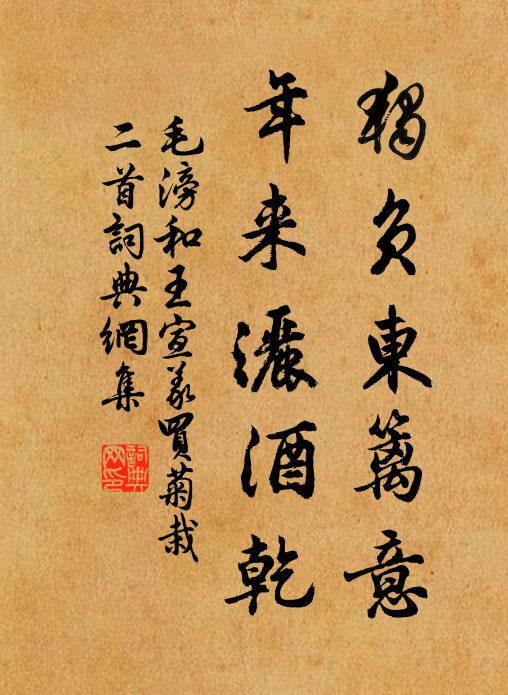 獨負東籬意
年来灑酒乾
毛滂和王宣義買菊栽
二首詞典網集
詞典
网印